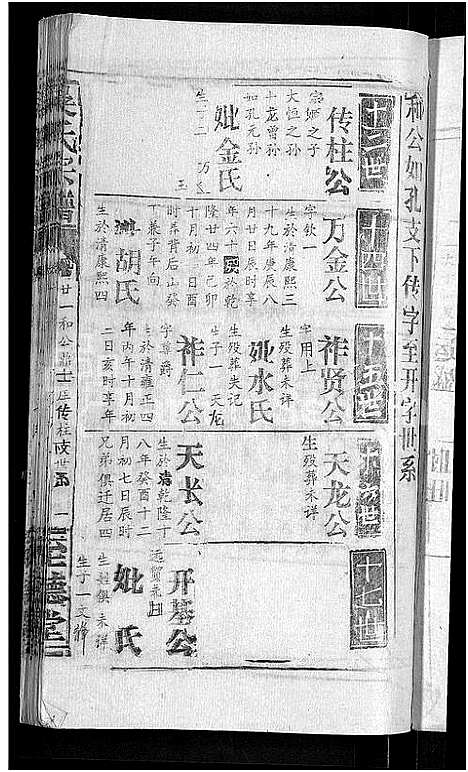 和公如孔支下传字至开字世系
十三世
传柱公
宗姬之子
大恒之孙
十龙曾孙
如孔元孙
妣金氏
生子二 万金
玉
十四世
万金公
字钦一
生於清康熙三
十九年庚辰八
月廿日辰时享
年六十殁於乾
隆廿四年己卯
十月初二日酉
时葬背后山癸
丁兼子午向
妣胡氏
生於清康熙四
十五世
祚贤公
字用上
生殁葬未详
妣水氏
生殁葬失记
生子一 天龙
祚仁公
字尊爵
生於清雍正四
年丙午十月初
二日亥时享年
十六世
天龙公
生殁葬未详
天长公
生於清乾隆十
八年癸酉十二
月初七日辰时
兄弟俱迁居四
十七世
开基公
远贸未回
妣 氏
生殂俱未详
生子一文
氏宗谱
廿一和公鼎士房传柱支世系
一
至德堂